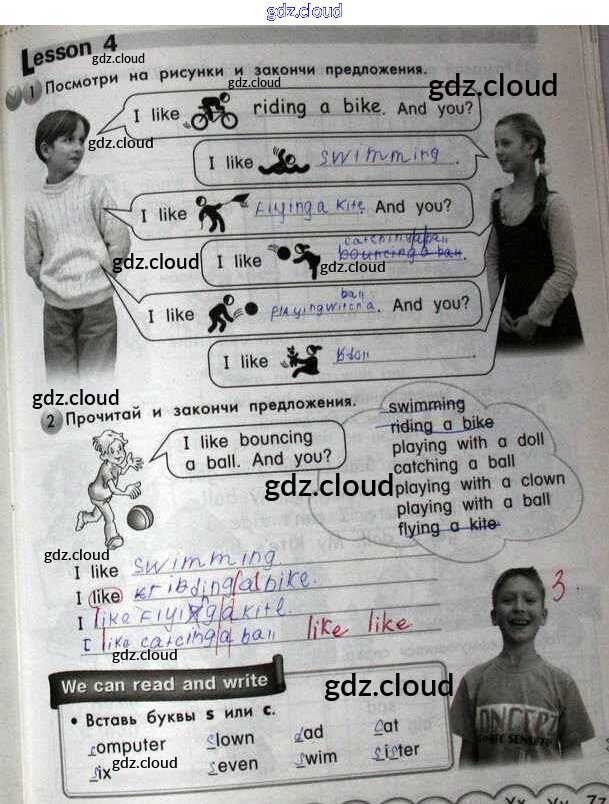 gdz.cloud
Lesson 4
gdz.cloud
1 Посмотри на рисунки и закончи предложения.
gdz.cloud
gdz.cloud
I like riding a bike. And you?
gdz.cloud
I like swimming.
I like Flying a kite And you?
catching a ball
I like bouncing a ball.
gdz.cloud
gdz.cloud
ball
I like playing with a. And you?
I like
gdz.cloud
2 Прочитай и закончи предложения.
I like bouncing
a ball. And you?
swimming
riding a bike
playing with a doll
catching a ball
playing with a clown
playing with a ball
flying a kite
gdz.cloud
gdz.cloud
I like swimming.
I like ribding a bike.
I like Flying a kite.
I like catcing a ball like like
3.
gdz.cloud
We can read and write
gdz.cloud
• Вставь буквы s или c.
somputer slown dad cat
six seven swim sister
gdz.cloud
CONCEPT